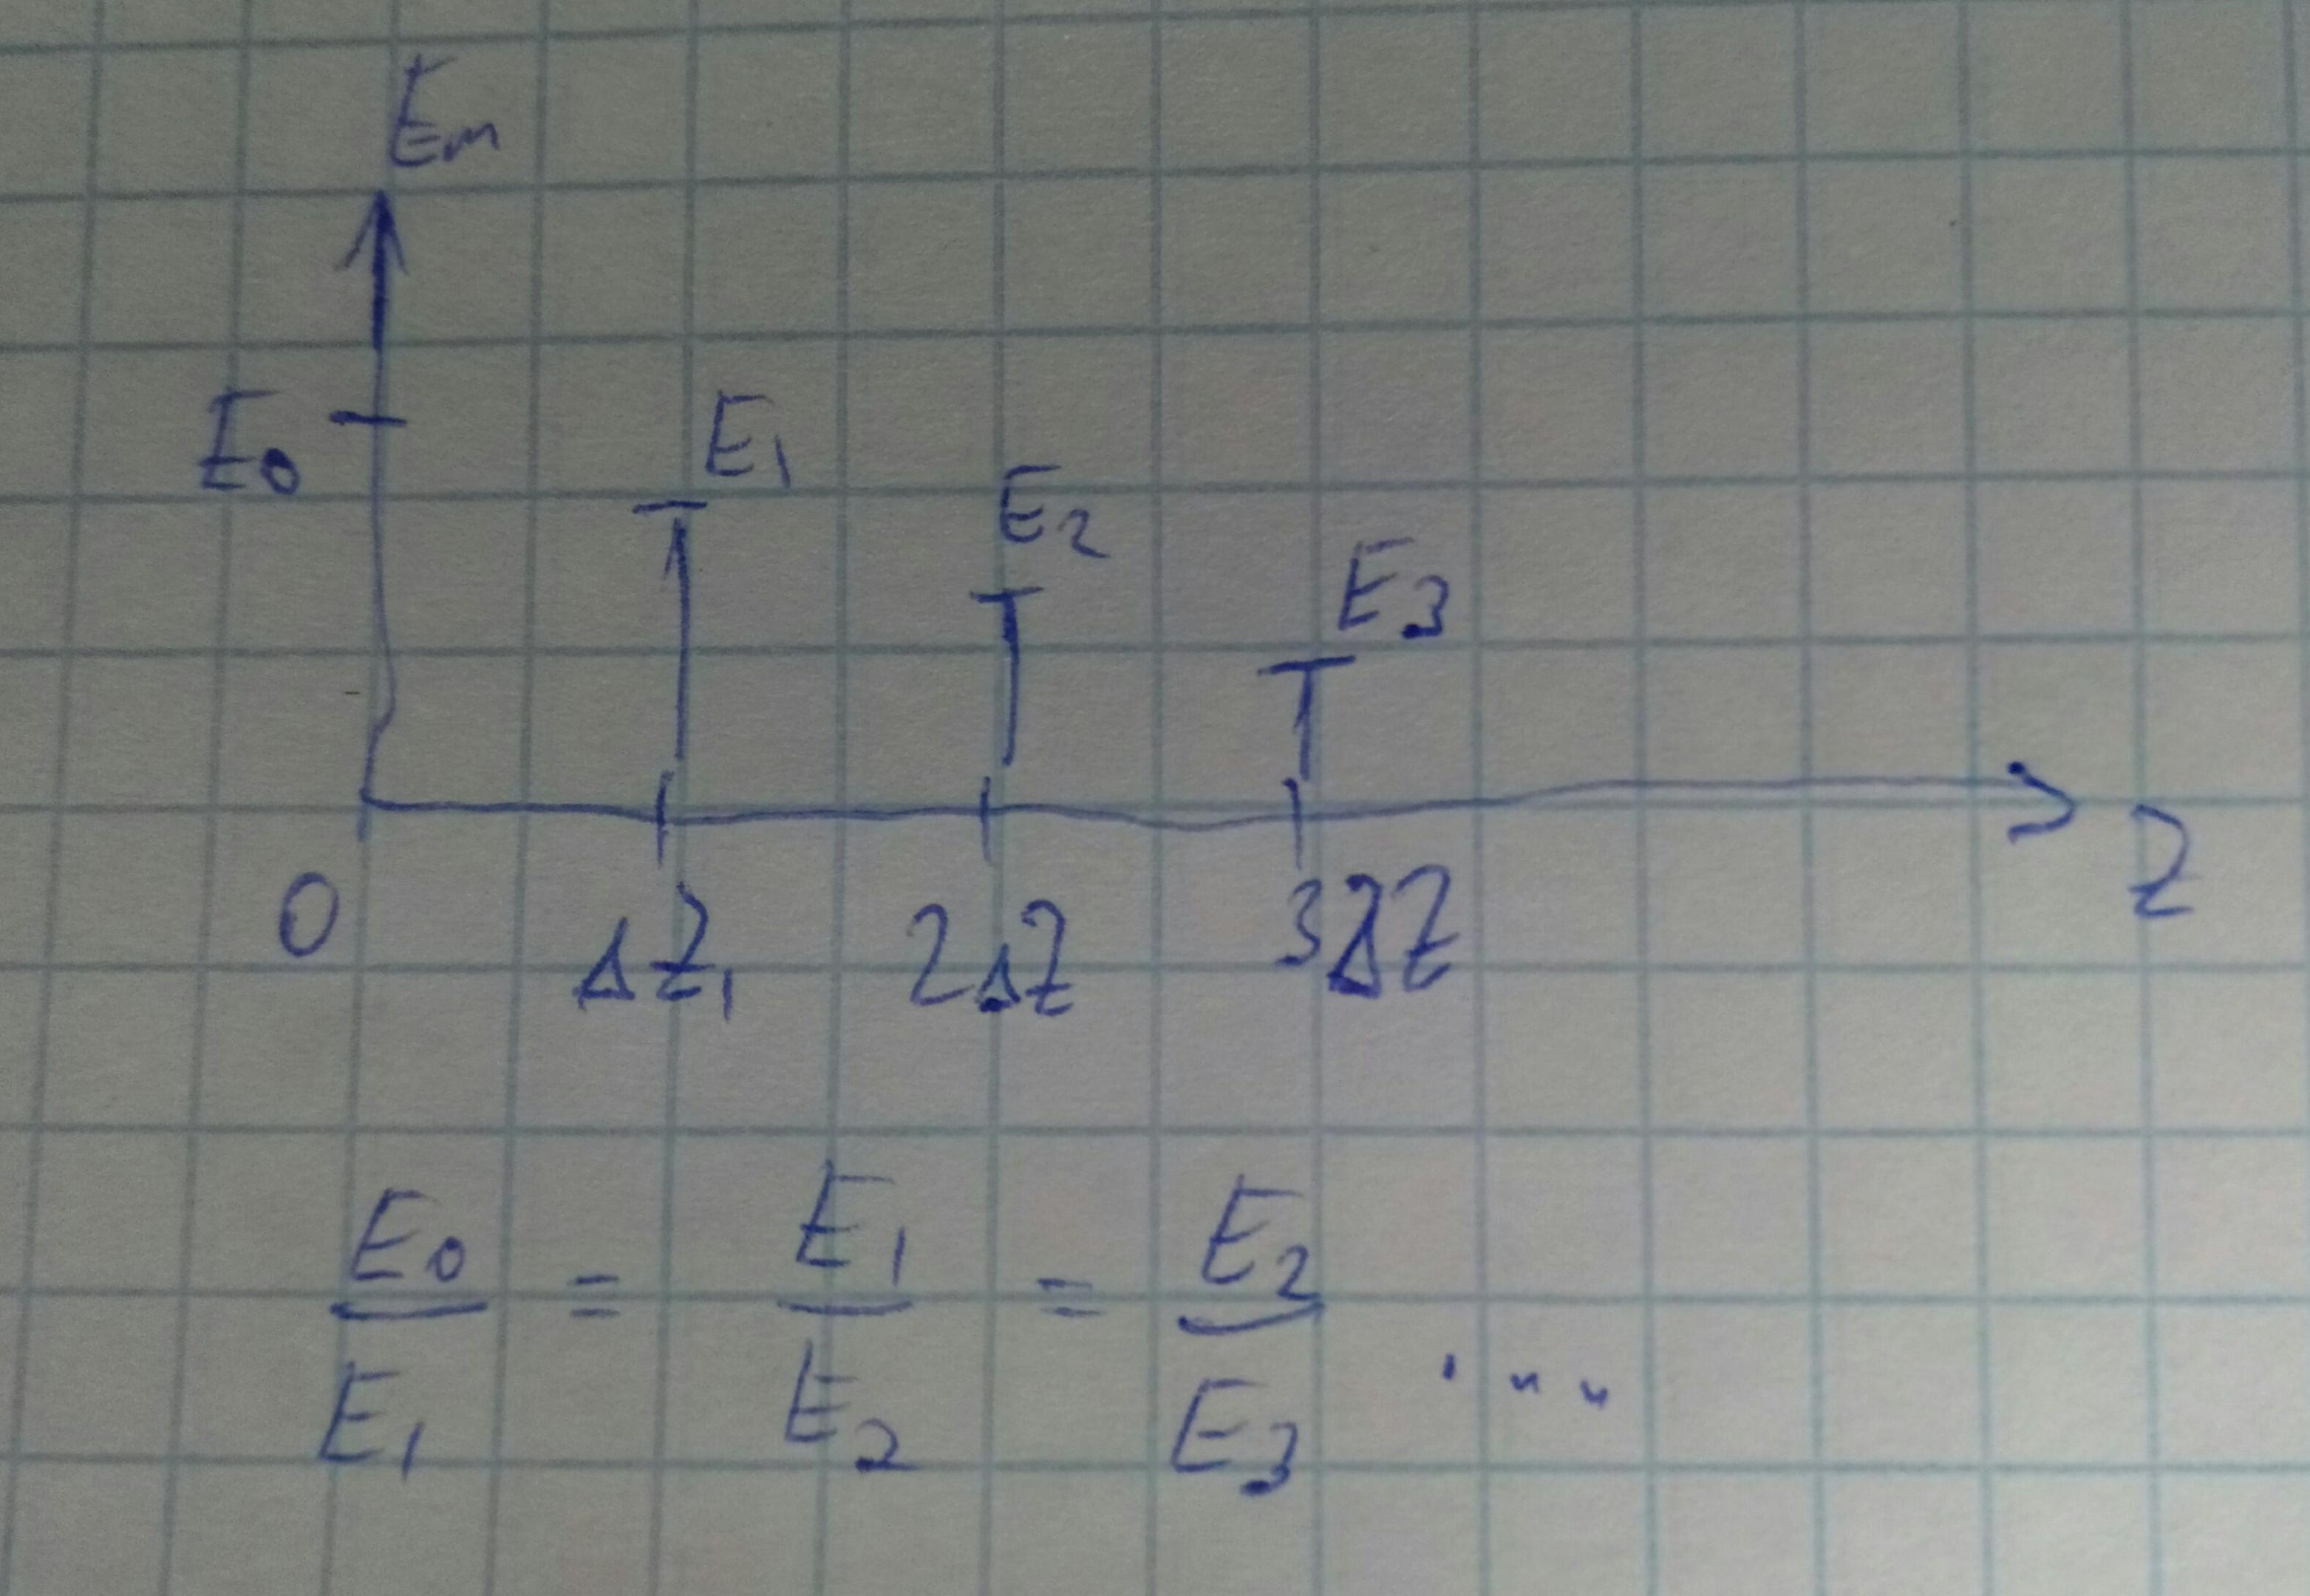 Em
E0
E1
E2
E3
0 ΔZ1 2ΔZ 3ΔZ Z
E0/E1 = E1/E2 = E2/E3 ...